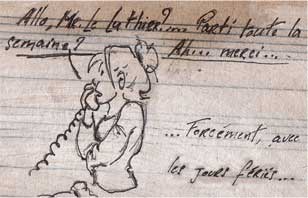 Allo, Mr le luthier?.... Parti toute la
semaine?
Ah... merci...
... Forcément, avec
les jours fériés...